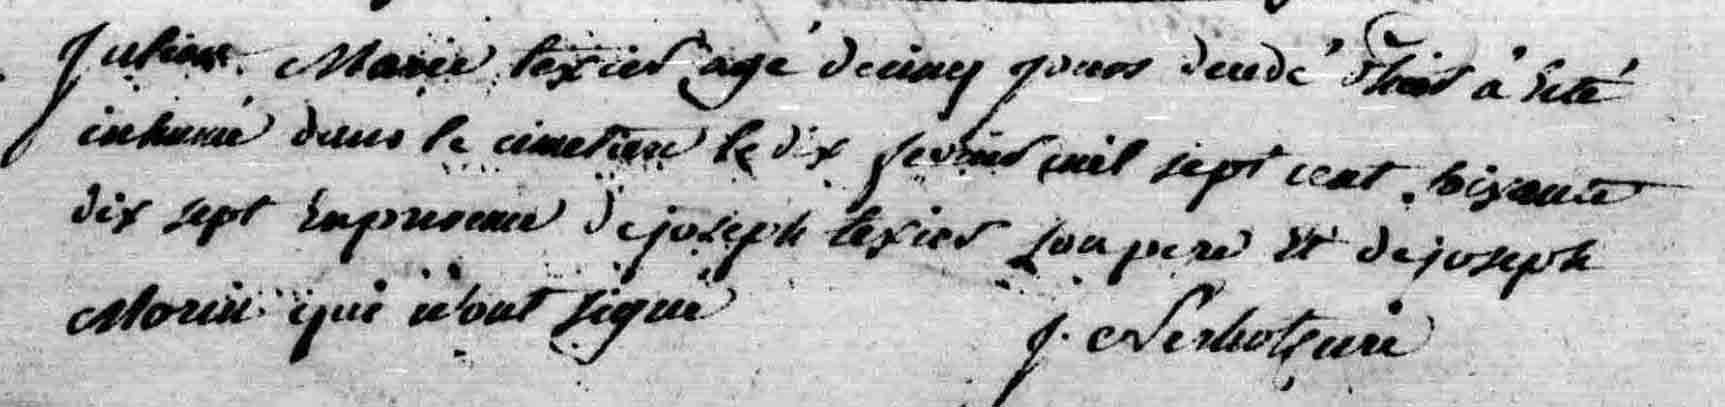 Julien Marie texier agé de cinq jours decedé hier à Eté
inhumé dans le cimetiere le dix fevrier mil sept cent soixante
dix sept En presence de joseph texier son pere Et de joseph
Morin qui n'ont signé
J.